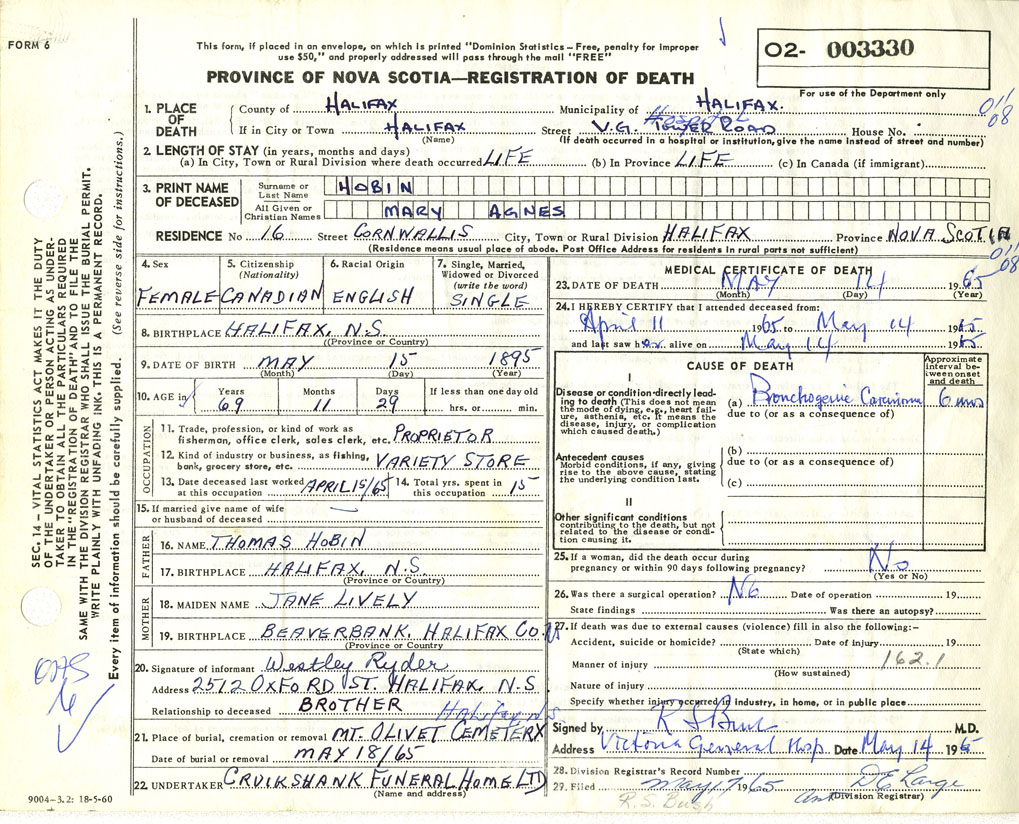 FORM 6
This form, if placed in an envelope, on which is printed "Dominion Statistics – Free, penalty for improper
use $50," and properly addressed will pass through the mail "FREE"
PROVINCE OF NOVA SCOTIA—REGISTRATION OF DEATH
O2- 003330
For use of the Department only
011
08
1. PLACE OF DEATH
County of HALIFAX Municipality of HALIFAX.
If in City or Town HALIFAX Street V.G. Hospital TOWER ROAD House No.
(Name) (If death occurred in a hospital or institution, give the name instead of street and number)
2. LENGTH OF STAY (in years, months and days)
(a) In City, Town or Rural Division where death occurred LIFE (b) In Province LIFE (c) In Canada (if immigrant)
3. PRINT NAME OF DECEASED
Surname or Last Name HOBIN
All Given or Christian Names MARY AGNES
RESIDENCE No 16 Street CORNWALLIS City, Town or Rural Division HALIFAX Province NOVA SCOTIA
(Residence means usual place of abode. Post Office Address for residents in rural parts not sufficient)
011
08
4. Sex FEMALE
5. Citizenship (Nationality) CANADIAN
6. Racial Origin ENGLISH
7. Single, Married, Widowed or Divorced (write the word) SINGLE
8. BIRTHPLACE HALIFAX, N.S.
(Province or Country)
9. DATE OF BIRTH MAY 15 1895
(Month) (Day) (Year)
10. AGE in Years 69 Months 11 Days 29 If less than one day old hrs. or min.
OCCUPATION
11. Trade, profession, or kind of work as
fisherman, office clerk, sales clerk, etc. PROPRIETOR
12. Kind of industry or business, as fishing,
bank, grocery store, etc. VARIETY STORE
13. Date deceased last worked at this occupation APRIL 15/65 14. Total yrs. spent in this occupation 15
15. If married give name of wife
or husband of deceased —
FATHER
16. NAME THOMAS HOBIN
17. BIRTHPLACE HALIFAX, N.S.
(Province or Country)
MOTHER
18. MAIDEN NAME JANE LIVELY
19. BIRTHPLACE BEAVERBANK, HALIFAX CO. NS
(Province or Country)
20. Signature of informant Westley Ryder
Address 2512 OXFORD ST. HALIFAX, N.S
Relationship to deceased BROTHER
Halifax N.S
21. Place of burial, cremation or removal MT. OLIVET CEMETERY
Date of burial or removal MAY 18/65
22. UNDERTAKER CRUIKSHANK FUNERAL HOME LTD
(Name and address)
MEDICAL CERTIFICATE OF DEATH
23. DATE OF DEATH MAY 14 1965
(Month) (Day) (Year)
24. I HEREBY CERTIFY that I attended deceased from:
April 11 1965 to May 14 1965
and last saw her alive on May 14 1965
CAUSE OF DEATH
Approximate interval between onset and death
I
Disease or condition directly leading to death (This does not mean the mode of dying, e.g., heart failure, asthenia, etc. It means the disease, injury, or complication which caused death.)
(a) Bronchogenic Carcinoma 6 mos
due to (or as a consequence of)
Antecedent causes
Morbid conditions, if any, giving rise to the above cause, stating the underlying condition last.
(b)
due to (or as a consequence of)
(c)
II
Other significant conditions
contributing to the death, but not related to the disease or condition causing it.
25. If a woman, did the death occur during
pregnancy or within 90 days following pregnancy? No
(Yes or No)
26. Was there a surgical operation? No Date of operation 19
State findings Was there an autopsy?
27. If death was due to external causes (violence) fill in also the following:–
Accident, suicide or homicide? Date of injury 19
(State which)
162.1
Manner of injury
(How sustained)
Nature of injury
Specify whether injury occurred in industry, in home, or in public place
Signed by M.D.
Address Victoria General Hosp. Date May 14 1965
28. Division Registrar's Record Number
29. Filed May 17 1965 D E Large
(Division Registrar)
R.S. Bush
SEC. 14 – VITAL STATISTICS ACT MAKES IT THE DUTY
OF THE UNDERTAKER OR PERSON ACTING AS UNDER-
TAKER TO OBTAIN ALL THE PARTICULARS REQUIRED
IN THE "REGISTRATION OF DEATH" AND TO FILE THE
SAME WITH THE DIVISION REGISTRAR WHO SHALL ISSUE THE BURIAL PERMIT.
WRITE PLAINLY WITH UNFADING INK. THIS IS A PERMANENT RECORD.
Every item of information should be carefully supplied. (See reverse side for instructions.)
9004-3.2: 18-5-60